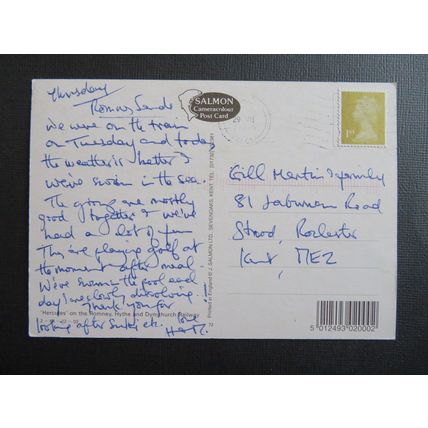 Thursday
Romney Sands
We were on the train
on Tuesday and today
the weather is better I
We've swam in the sea.
The gang are mostly
good together & we've
had a lot of fun
They are playing golf at
the moment after meal
We've swum in the pool each
day I'm slowly dissolving!!
Thank you for
looking after etc.
love
SALMON
Cameracolour
Post Card
1st
Gill Martin & family
81 Laburnum Road
Strood, Rochester
Kent ME2
"Hercules" on the Romney, Hythe and Dymchurch Railway
Printed in England © J. SALMON LTD., SEVENOAKS, KENT TEL.
5 012493 020002